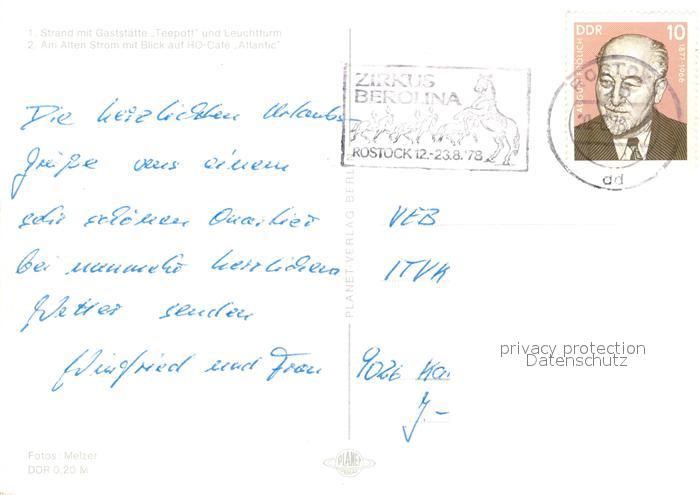 1. Strand mit Gaststätte „Teepott" und Leuchtturm
2. Am Alten Strom mit Blick auf HO-Café „Atlantic"
DDR
10
AUGUST FRÖLICH
1877-1966
ZIRKUS
BEROLINA
ROSTOCK 12.-23.8.'78
dd
Die herzlichsten Urlaubs-
grüße aus einem
sehr schönen Quartier
bei nunmehr herrlichem
Wetter senden
Winfried und Frau
PLANET-VERLAG BERLIN
VEB
ITVK
9026
privacy protection
Datenschutz
Fotos: Melzer
DDR 0,20 M
PLANET
VERLAG